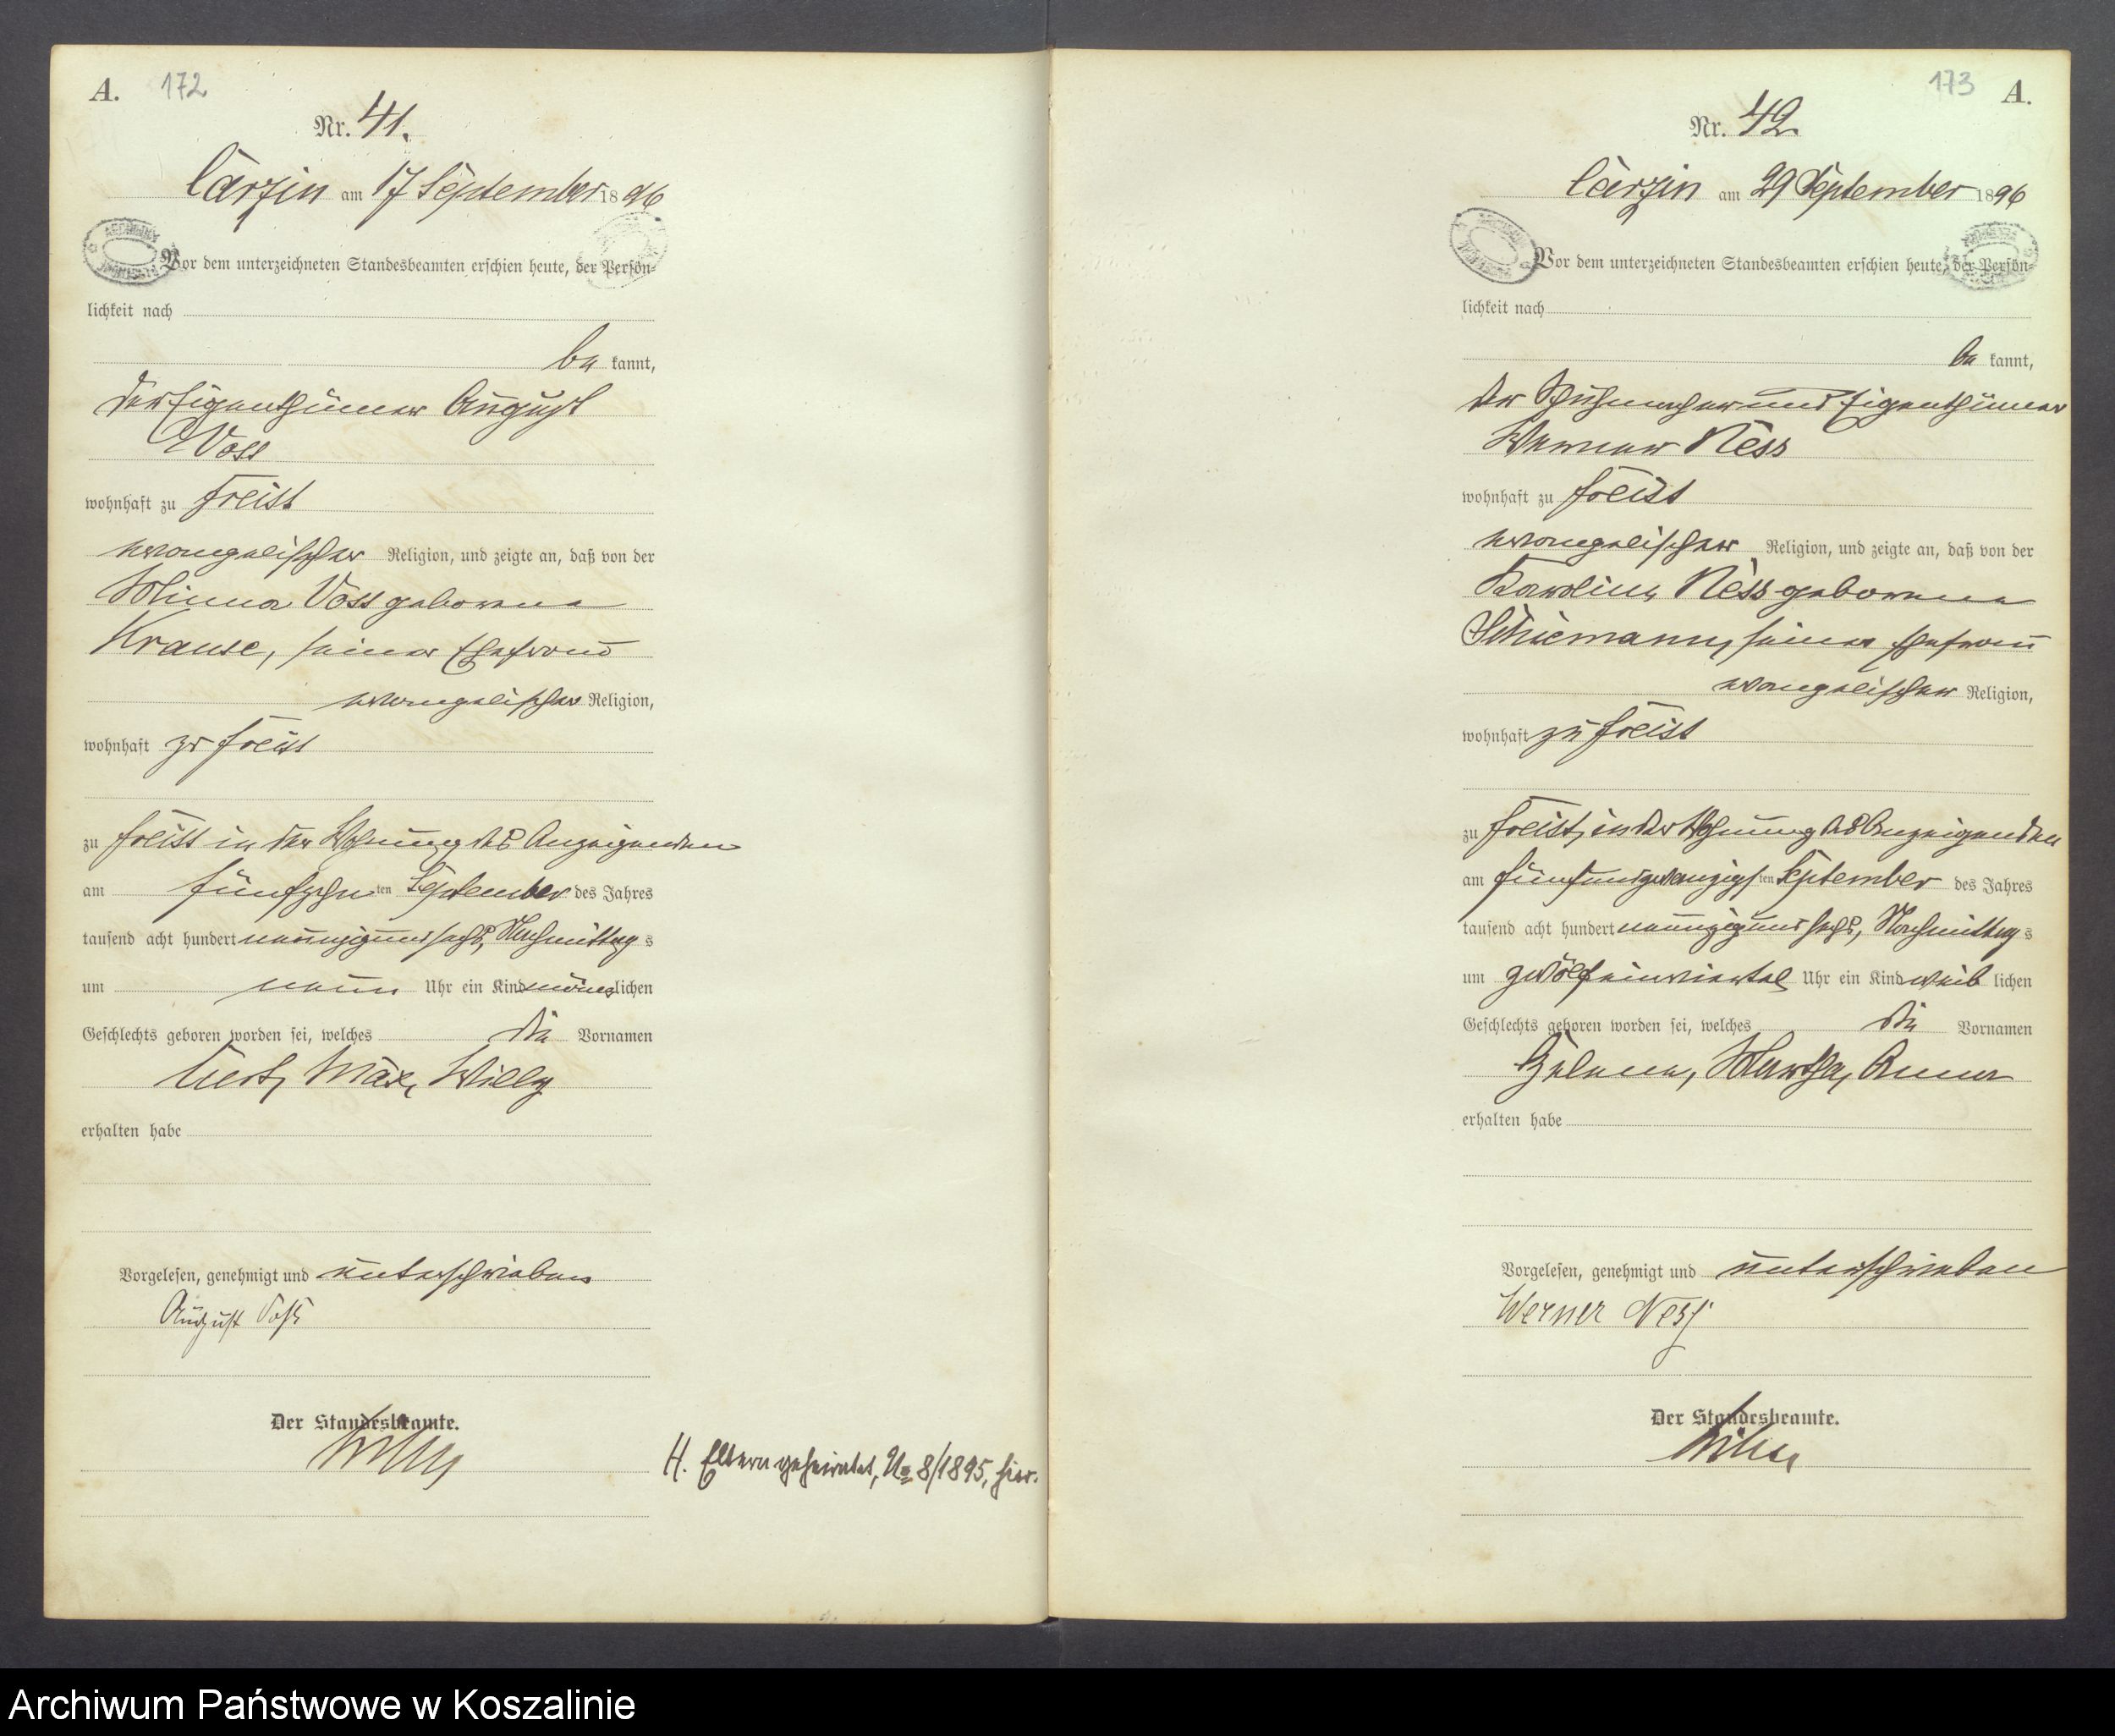 A. 172
Nr. 41.
Carzin am 17 September 1896
Vor dem unterzeichneten Standesbeamten erschien heute, der Persön-
lichkeit nach
be kannt,
der Eigenthümer August
Voss
wohnhaft zu Freist
evangelischer Religion, und zeigte an, daß von der
Minna Voss geborene
Krause, seiner Ehefrau
evangelischer Religion,
wohnhaft zu Freist
zu Freist in der Wohnung des Anzeigenden
am fünfzehnten September des Jahres
tausend acht hundert neunzig und sechs, Nachmittags
um neun Uhr ein Kind männlichen
Geschlechts geboren worden sei, welches die Vornamen
Max, Willy
erhalten habe
Vorgelesen, genehmigt und unterschrieben
August Voß
Der Standesbeamte.
H. Eltern geheiratet, No 8/1895, hier.
173 A.
Nr. 42
Carzin am 29 September 1896
Vor dem unterzeichneten Standesbeamten erschien heute, der Persön-
lichkeit nach
be kannt,
der Schuhmacher und Eigenthümer
Werner Ness
wohnhaft zu Freist
evangelischer Religion, und zeigte an, daß von der
Karoline Ness geborene
Schiemann, seiner Ehefrau
evangelischer Religion,
wohnhaft zu Freist
zu Freist, in der Wohnung des Anzeigenden
am fünfundzwanzigsten September des Jahres
tausend acht hundert neunzig und sechs, Nachmittags
um zwölfeinviertel Uhr ein Kind weiblichen
Geschlechts geboren worden sei, welches die Vornamen
Helene, Martha, Anna
erhalten habe
Vorgelesen, genehmigt und unterschrieben
Werner Neß
Der Standesbeamte.
Archiwum Państwowe w Koszalinie